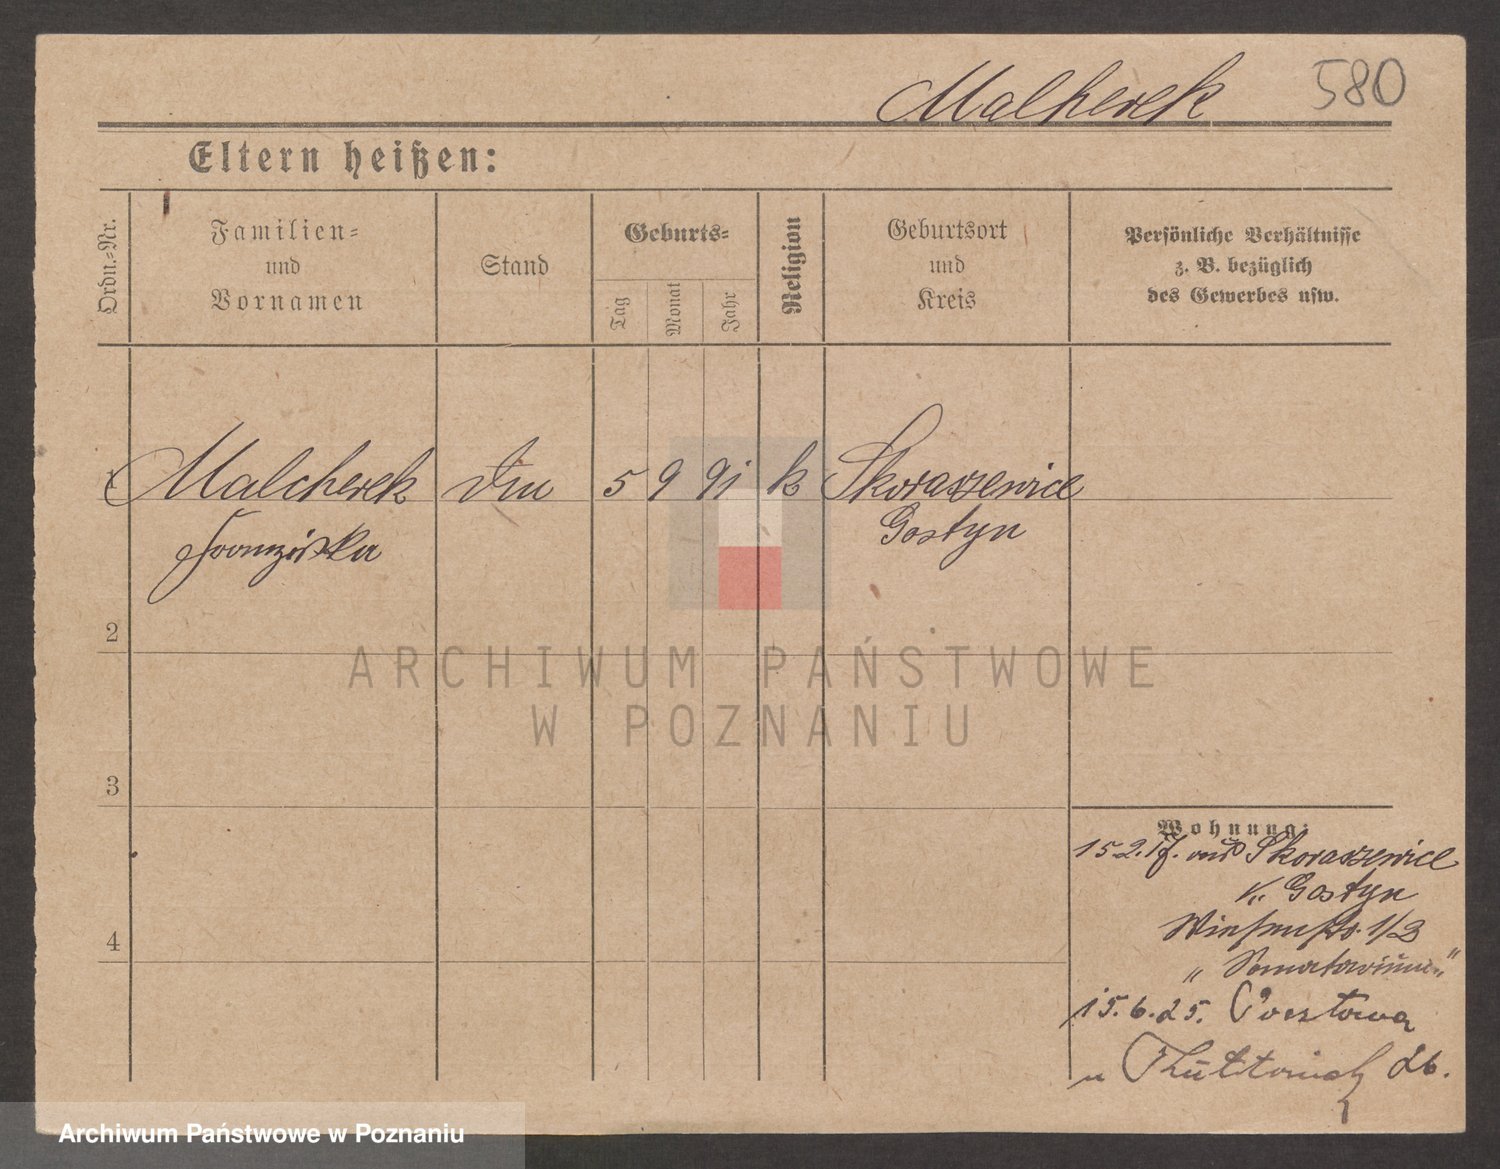 Malcherek 580
Eltern heißen:
Ordn.-Nr.
Familien-
und
Vornamen
Stand
Geburts-
Tag
Monat
Jahr
Religion
Geburtsort
und
Kreis
Persönliche Verhältnisse
z. B. bezüglich
des Gewerbes usw.
1 Malcherek 5 9 91 k Skoraszewice
Franziska Gostyn
2
ARCHIWUM PAŃSTWOWE
W POZNANIU
3
Wohnung:
15 2. 17. Skoraszewice
K. Gostyn
Wiesenstr. 1/3
"Sanatorium"
15.6.25. Pocztowa
u 26.
4
Archiwum Państwowe w Poznaniu